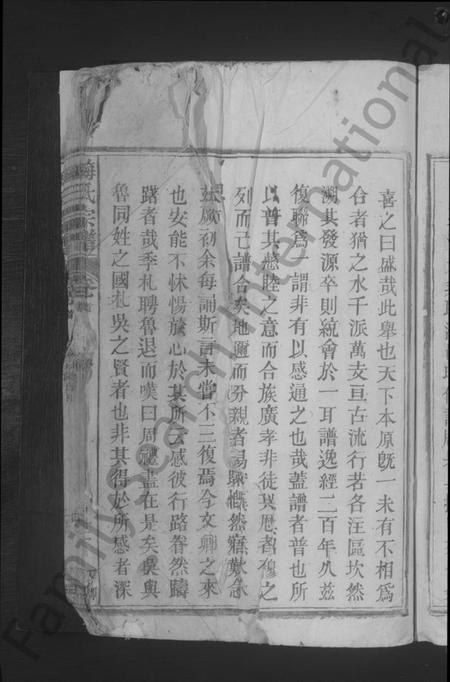 喜之曰盛哉此舉也天下本原旣一未有不相爲
合者猶之水千派萬支亘古流行若各注區坎然
溯其發源卒則統會於一耳譜逸經二百年久茲
復聯爲一謂非有以感通之也哉蓋譜者普也所
以普其懿睦之意而合族廣孝非徒具昭穆之
列而已譜合矣地邇而分親者易聯
厥初余每誦斯言未嘗不三復焉今文卿之來
也安能不怵惕於心於其所云感彼行路眷然躊
躇者哉季札聘魯退而嘆曰周禮盡在是矣吳與
魯同姓之國札吳之賢者也非其得於所感者深
梅氏宗譜
FamilySearch International